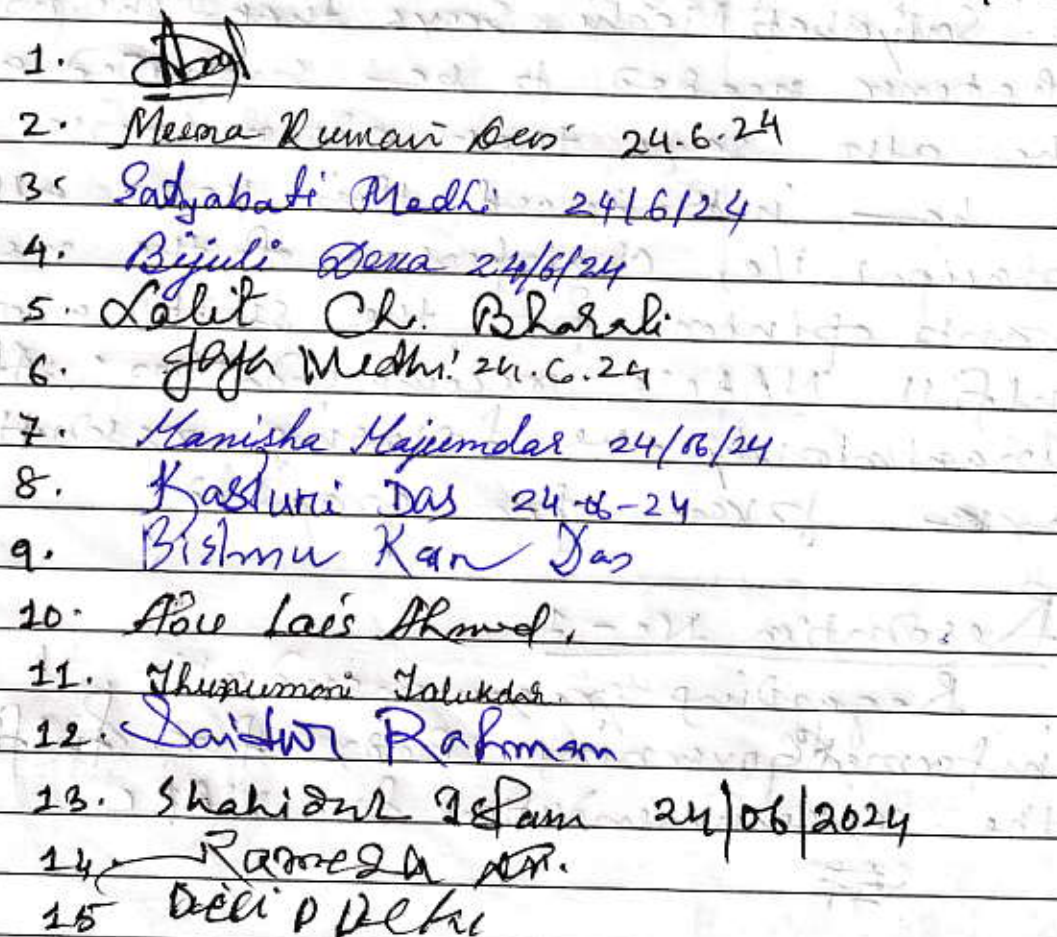 1.
2. Meena Kumari Devi 24.6.24
3. Satyabati Medhi 24/6/24
4. Bijuli Deka 24/6/24
5. Lalit Ch. Bharali
6. Jaya Medhi 24.6.24
7. Manisha Majumdar 24/06/24
8. Kasturi Das 24-06-24
9. Bishnu Ram Das
10. Abu Lais Ahmed,
11. Jhunumoni Talukdar
12. Saidur Rahman
13. Shahidul Islam 24/06/2024
14.
15 Dilip Deka